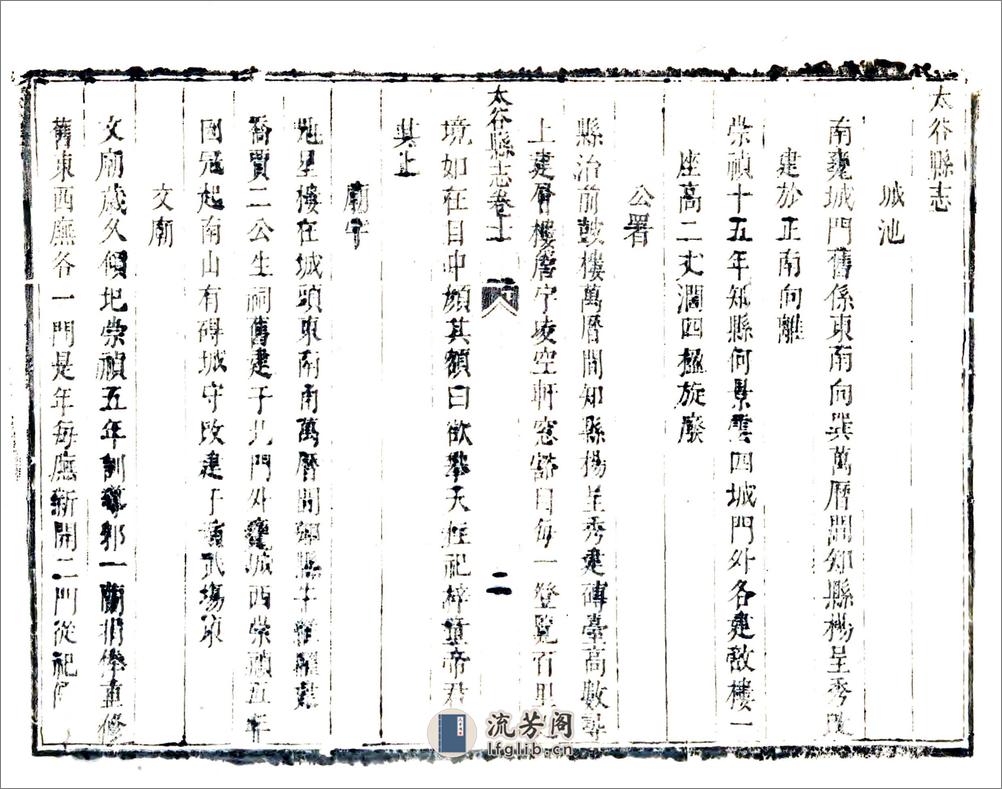 太谷縣志
城池
南甕城門舊係東南向巽萬曆間知縣楊呈秀改
建於正南向離
崇禎十五年知縣何景雲四城門外各建敵樓一
座高二丈濶四極旋廢
公署
縣治前鼓樓萬曆間知縣楊呈秀建磚臺高數尋
上建層樓層宇凌空軒窓豁目每一登覧百里
境如在目中顔其額曰欲擎天柱祀梓童帝君
其上
太谷縣志卷十
二
廟宇
魁星樓在城頭東南角萬曆間知縣
喬賈二公生祠舊建于北門外甕城西崇禎五年
因冦起南山有碍城守改建于演武塲東
文廟
文廟歲久傾圮崇禎五年訓導郭一蘭捐俸重修
舊東西廡各一門是年每廡新開二門從祀
流芳阁
lfglib.cn